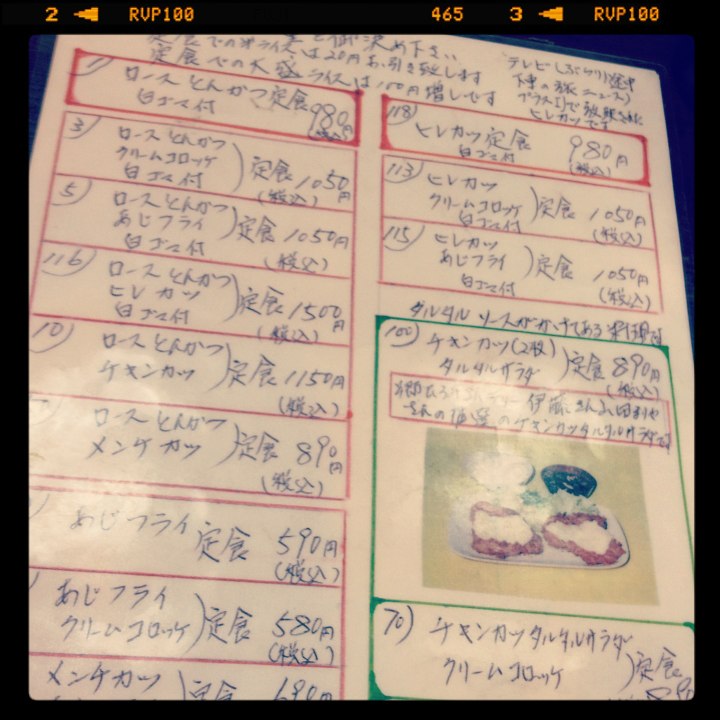 2 RVP100 465 3 RVP100
定食での
定食での大盛ライスは100円増しです
1) ロースとんかつ定食 980円
白ゴマ付 (税込)
3) ロースとんかつ
クリームコロッケ 定食 1050円
白ゴマ付 (税込)
5) ロースとんかつ
あじフライ 定食 1050円
白ゴマ付 (税込)
116) ロースとんかつ
ヒレカツ 定食 1500円
白ゴマ付 (税込)
10) ロースとんかつ
チキンカツ 定食 1150円
(税込)
ロースとんかつ
メンチカツ 定食 890円
(税込)
あじフライ 定食 590円
(税込)
あじフライ
クリームコロッケ 定食 580円
(税込)
メンチカツ 定食 690円
テレビ
ヒレカツです
118) ヒレカツ定食 980円
白ゴマ付 (税込)
113) ヒレカツ
クリームコロッケ 定食 1050円
白ゴマ付 (税込)
115) ヒレカツ
あじフライ 定食 1050円
白ゴマ付 (税込)
タルタルソースがかけてある料理は
100) チキンカツ(2枚)
タルタルサラダ 定食 890円
(税込)
伊藤さん
の チキンカツタルタルサラダです
70) チキンカツタルタルサラダ
クリームコロッケ 定食